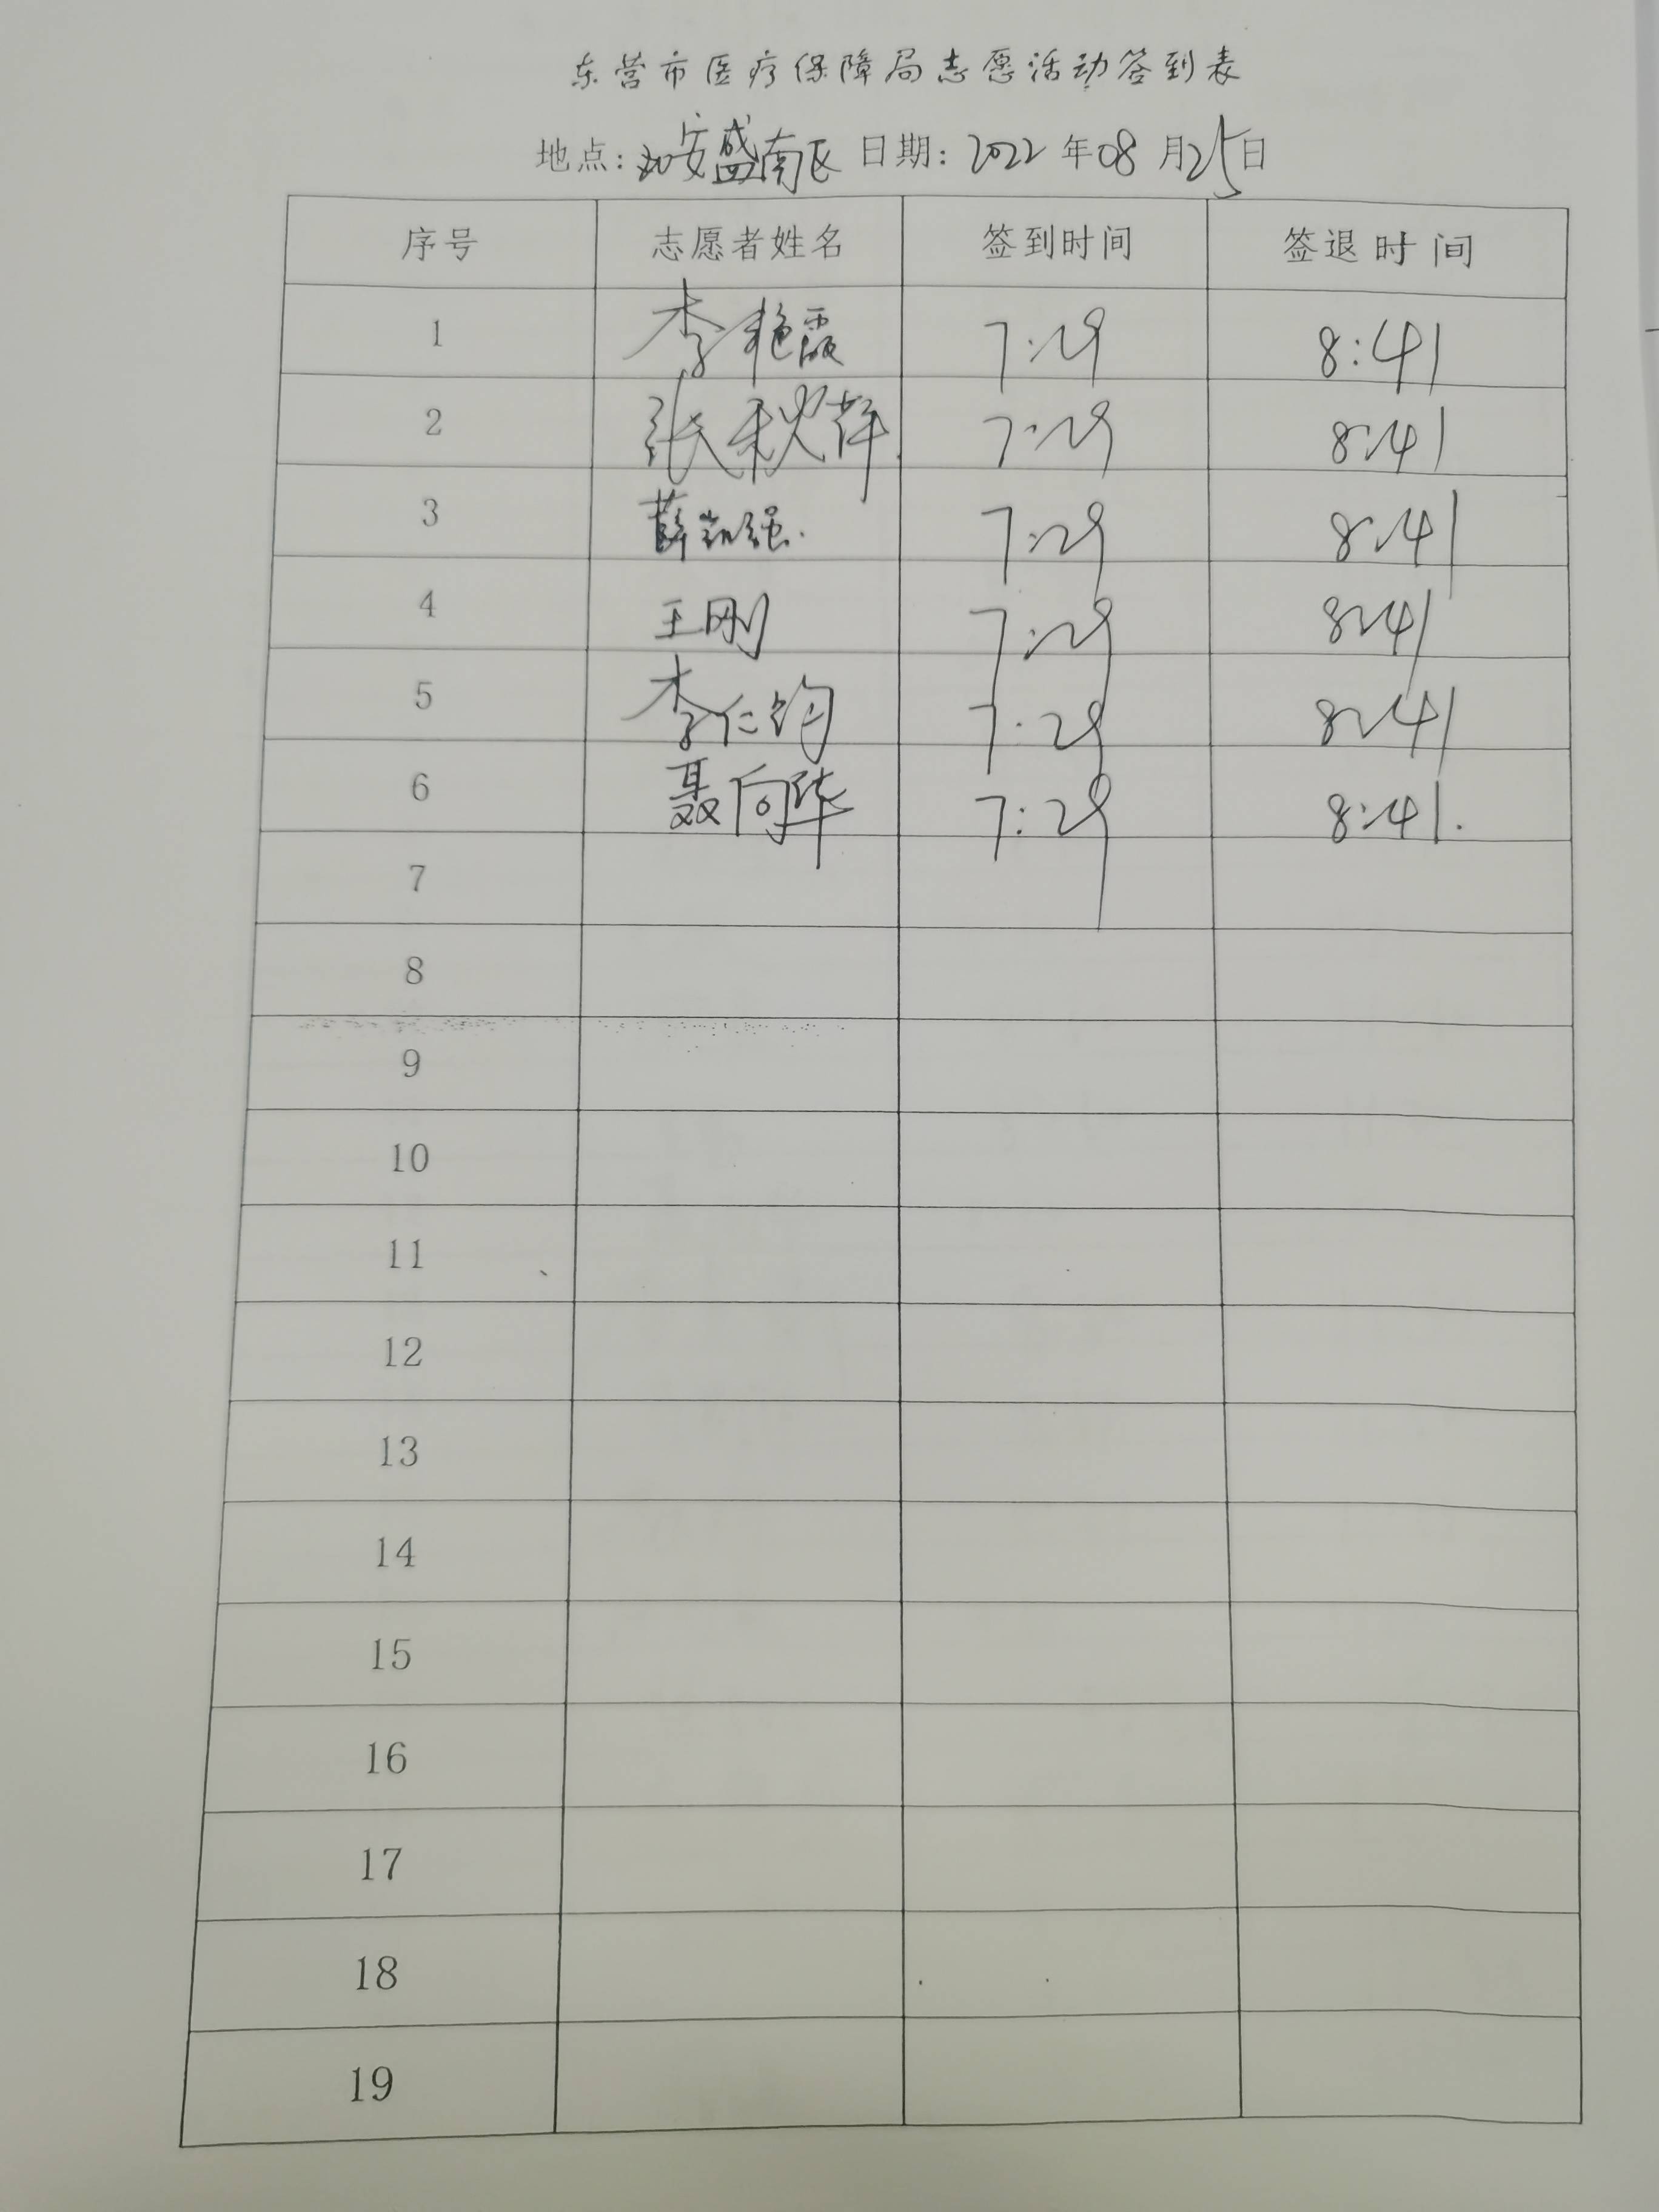 东营市医疗保障局志愿活动签到表
地点:安盛南区 日期:2022年08月25日
序号 志愿者姓名 签到时间 签退时间
1 李艳霞 7:29 8:41
2 张秋萍 7:29 8:41
3 薛凯强. 7:29 8:41
4 王刚 7:29 8:41
5 李仁钧 7:29 8:41
6 聂向华 7:29 8:41.
7
8
9
10
11
12
13
14
15
16
17
18
19